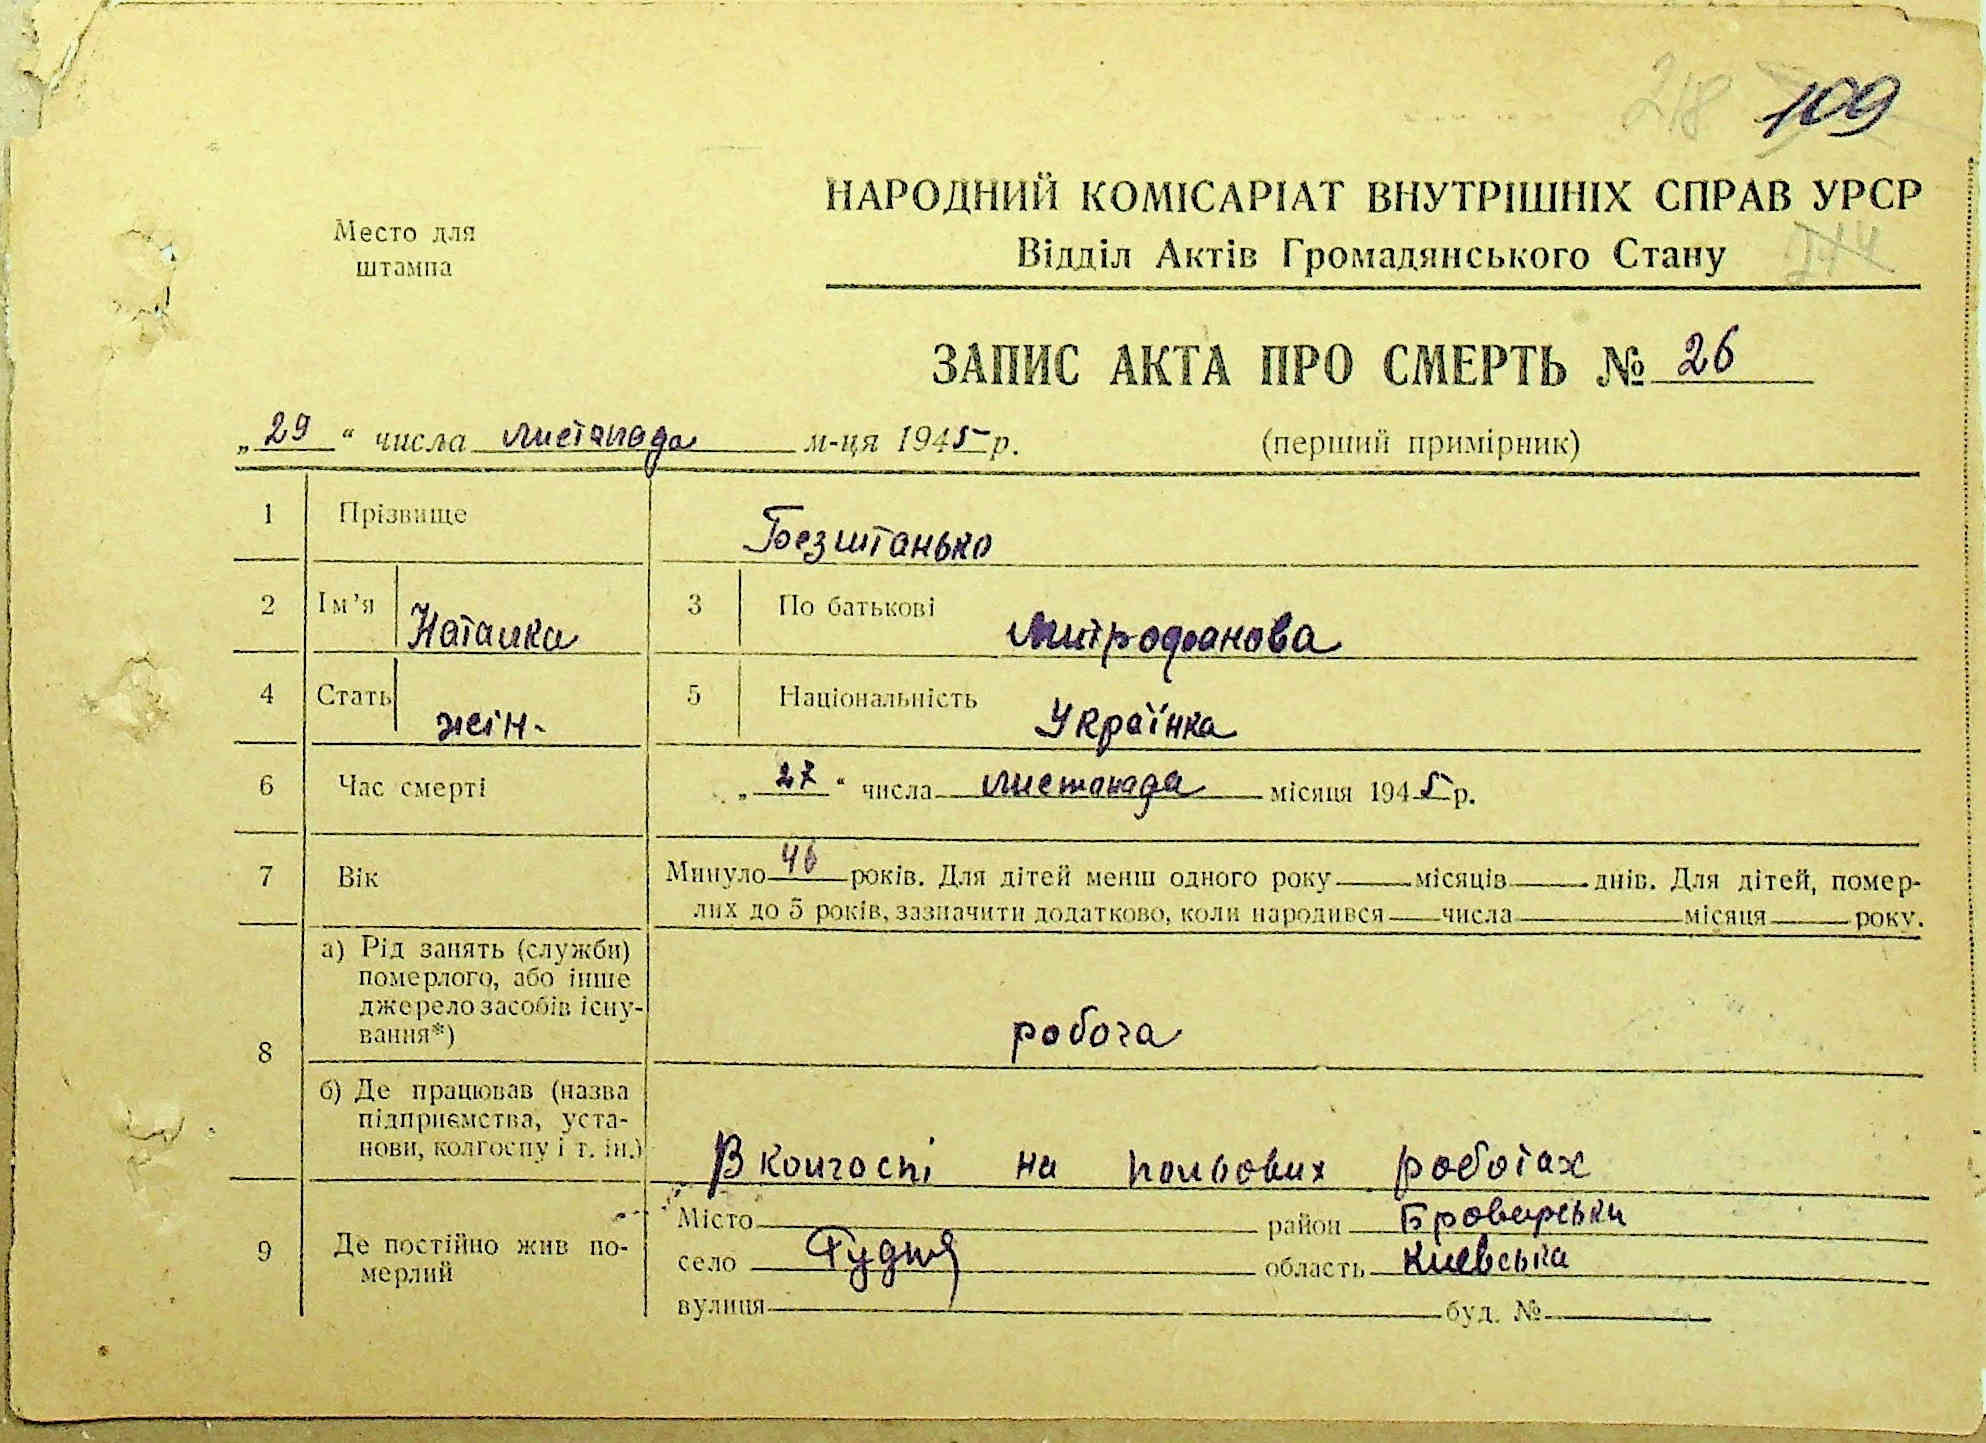 218 109
НАРОДНИЙ КОМІСАРІАТ ВНУТРІШНІХ СПРАВ УРСР
Место для штампа
Відділ Актів Громадянського Стану
244
ЗАПИС АКТА ПРО СМЕРТЬ № 26
„29“ числа листапада м-ця 1945 р. (перший примірник)
1 Прізвище Безштанько
2 Ім'я Наталка 3 По батькові Митрофанова
4 Стать жін. 5 Національність Українка
6 Час смерті „27“ числа листапада місяця 1945 р.
7 Вік Минуло 46 років. Для дітей менш одного року місяців днів. Для дітей, помер-
лих до 5 років, зазначити додатково, коли народився числа місяця року.
8 а) Рід занять (служби)
померлого, або інше
джерело засобів існу-
вання*) робоча
б) Де працював (назва
підприємства, уста-
нови, колгоспу і т. ін.) В колгоспі на польових роботах
9 Де постійно жив по-
мерлий
Місто район Броварськи
село область Киевська
вулиця буд. №